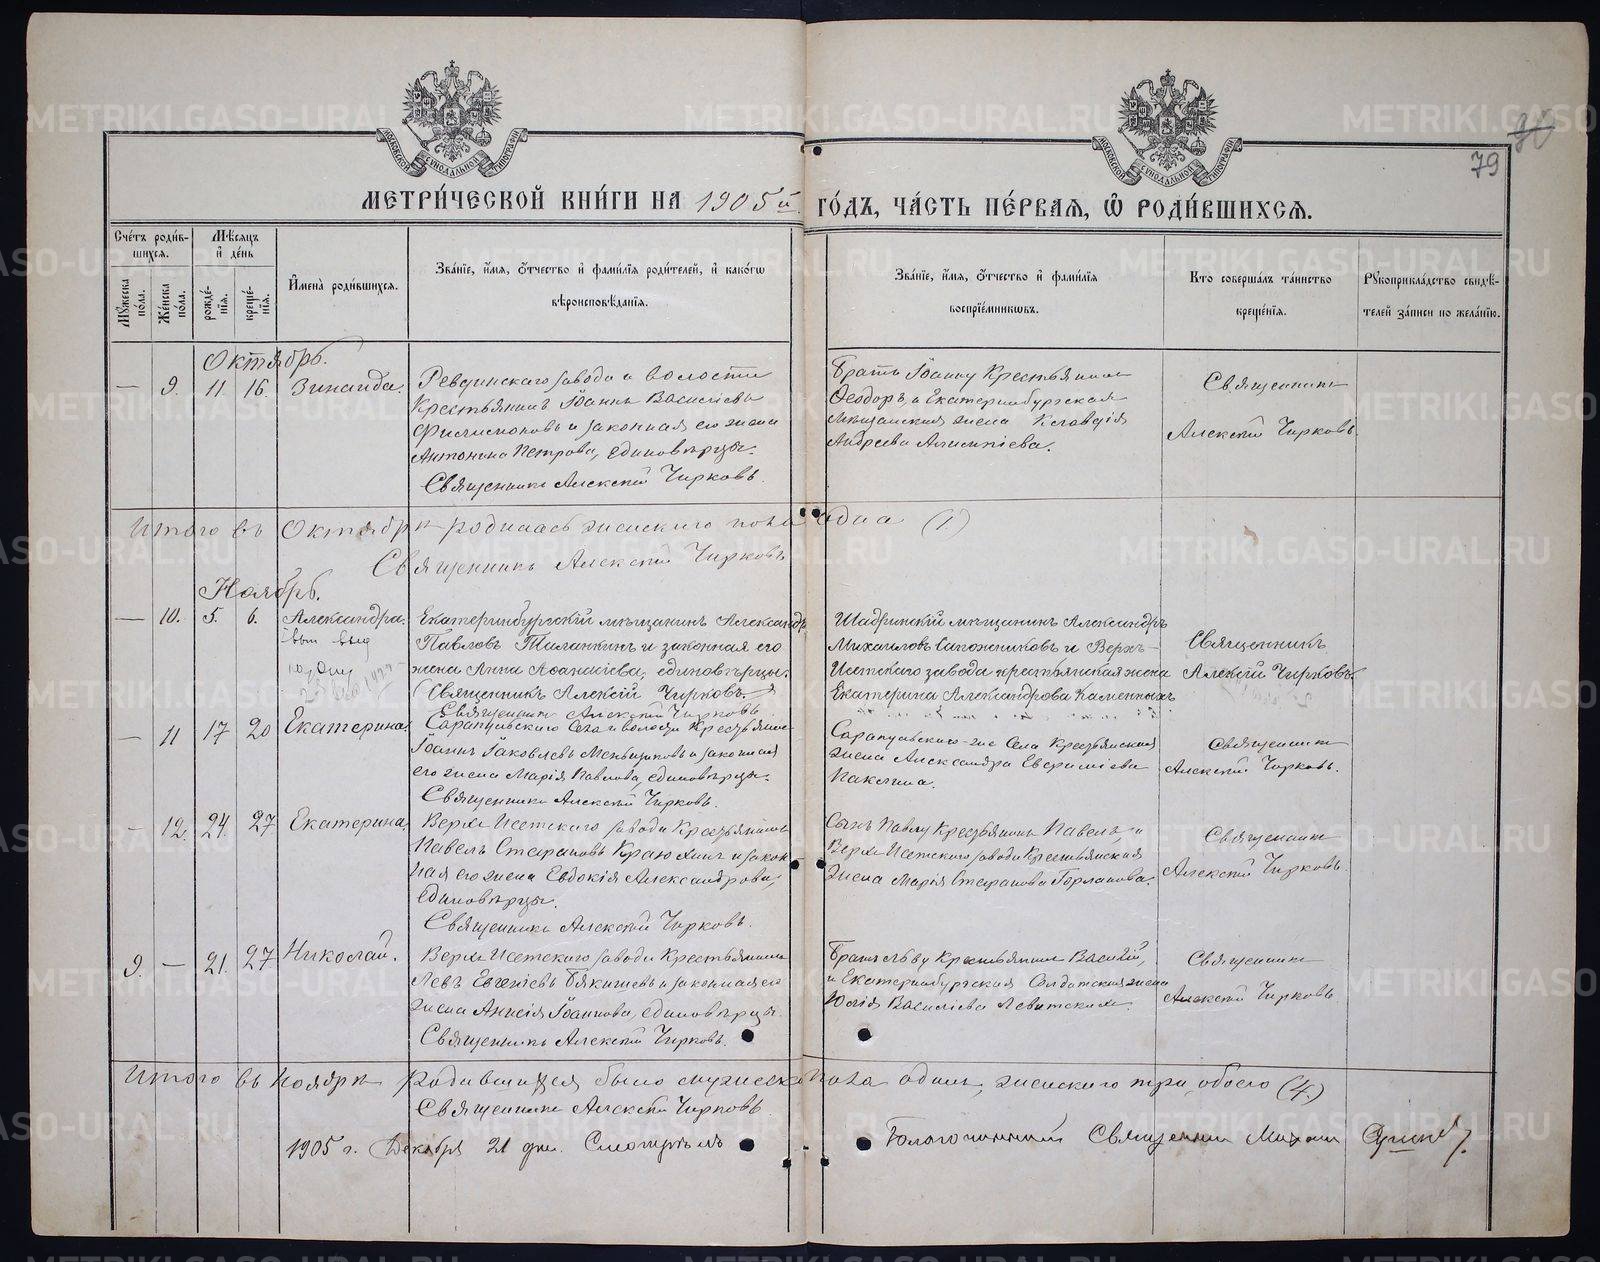 МОСКОВСКОЙ СѴНОДАЛЬНОЙ ТИПОГРАФІИ
МОСКОВСКОЙ СѴНОДАЛЬНОЙ ТИПОГРАФІИ
80
79
МЕТРИ́ЧЕСКОЙ КНИ́ГИ НА 1905й ГО́ДЪ, ЧА́СТЬ ПЕ́РВАЯ, Ѡ РОДИ́ВШИХСЯ.
Счётъ роди́вшихся.
Му́жеска по́ла.
Же́нска по́ла.
Мѣ́сяцъ и де́нь
рожде́нія.
креще́нія.
Имена̀ роди́вшихся.
Зва́ніе, и́мя, о́тчество и фами́лія роди́телей, и како́гѡ
вѣроисповѣ́данія.
Зва́ніе, и́мя, о́тчество и фами́лія
воспріе́мникѡвъ.
Кто соверша́лъ та́инство
креще́нія.
Рукоприкла́дство свидѣ́-
телей за́писи по жела́нію.
Октябрь.
— 9. 11 16. Зинаида.
Ревдинскаго завода и волости
Крестьянинъ Іоаннъ Василіевъ
Филимоновъ и законная его жена
Антонина Петрова, единовѣрцы.
Священникъ Алексій Чирковъ.
Братъ Іоанну Крестьянинъ
Ѳеодоръ, и Екатеринбургская
мѣщанская жена Клавдія
Андреева
Священникъ
Алексій Чирковъ
Итого въ Октябрѣ родилась женскаго пола одна (1)
Священникъ Алексій Чирковъ
Ноябрь.
— 10. 5. 6. Александра.
Екатеринбургскій мѣщанинъ Александръ
Павловъ и законная его
жена Анна Аѳанасіева, единовѣрцы.
Священникъ Алексій Чирковъ.
Шадринскій мѣщанинъ Александръ
Михаиловъ Сапожниковъ и Верхъ-
Исетскаго завода крестьянская жена
Екатерина Александрова Каменныхъ
Священникъ
Алексій Чирковъ.
Священникъ Алексій Чирковъ
— 11 17 20 Екатерина.
Сарапульскаго Села и волости Крестьянинъ
Іоаннъ Іаковлевъ Меньщиковъ и законная
его жена Марія Павлова, единовѣрцы.
Священникъ Алексій Чирковъ.
Сарапульскаго-же Села Крестьянская
жена Александра
Священникъ
Алексій Чирковъ.
— 12. 24. 27 Екатерина.
Верхъ Исетскаго завода Крестьянинъ
Павелъ Стефановъ и закон-
ная его жена Евдокія Александрова,
единовѣрцы.
Священникъ Алексій Чирковъ.
Сынъ Павлу Крестьянинъ Павелъ, и
Верхъ Исетскаго завода Крестьянская
жена Марія Стефанова
Священникъ
Алексій Чирковъ.
9. — 21. 27 Николай.
Верхъ Исетскаго завода Крестьянинъ
Левъ Евгеніевъ и законная его
жена Анисія Іоаннова, единовѣрцы.
Священникъ Алексій Чирковъ.
Братъ Льву Крестьянинъ Василій,
и Екатеринбургская Солдатская жена
Юлія Василіева
Священникъ
Алексій Чирковъ
Итого въ Ноябрѣ родившихся было мужеска пола одинъ, женскаго три, обоего (4.)
Священникъ Алексій Чирковъ
1905 г. Декабря 21 дня. Смотрѣлъ Благочинный Священникъ Михаилъ
METRIKI.GASO-URAL.RU